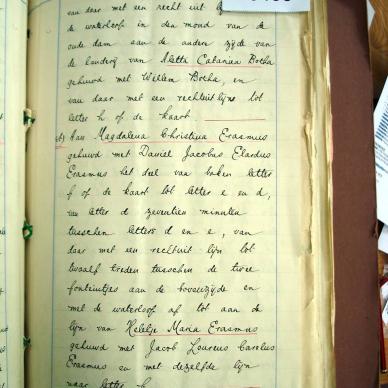 van daar met een recht uit lij
de waterloop in den mond van de
oude dam aan de andere zijde van
de landerij van Aletta Catarina Botha
gehuwd met Willem Botha, en
van daar met een rechtuit lijne tot
letter h of de kaart.
Aan Magdalena Christina Erasmus
gehuwd met Daniel Jacobus Elardus
Erasmus het deel van baken letter
f op de kaart tot letter e en d,
van letter d zeventien minuten
tusschen letters d en e, van
daar met een rechtuit lijn tot
twaalf treden tusschen de twee
fonteintjes aan de bovenzijde en
met de waterloop af tot aan de
lijn van Heletje Maria Erasmus
gehuwd met Jacob Lourens Carelus
Erasmus en met dezelfde lijn
naar letter h